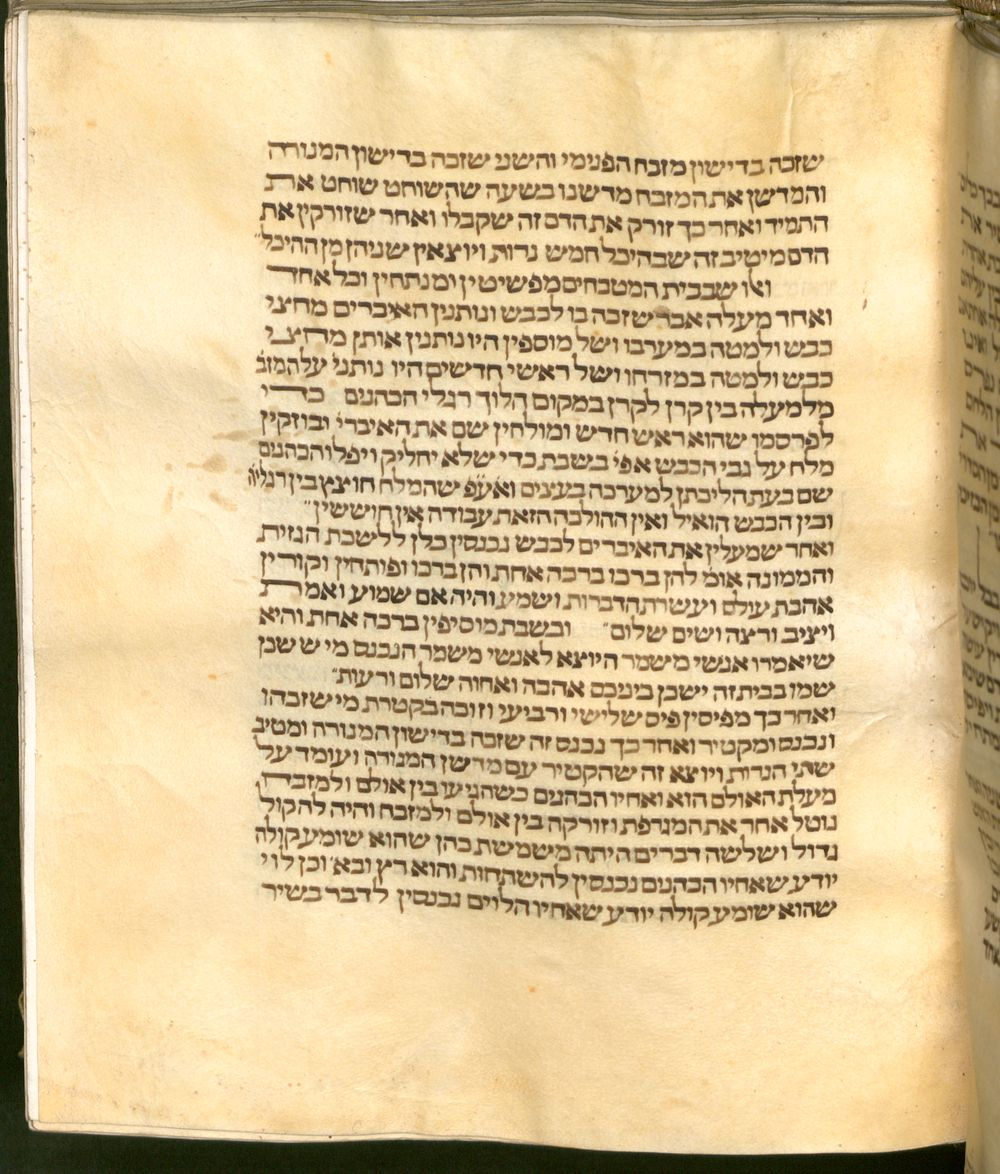 שזכה בדישון מזבח הפנימי והשני שזכה בדישון המנורה
והמדשן את המזבח מדשנו בשעה שהשוחט שוחט את
התמיד ואחר כך זורק את הדם זה שקבלו ואחר שזורקין את
הדם מיטיב זה שבהיכל חמש נרות ויוצאין שניהן מן ההיכל״
ואלו שבבית המטבחים מפשיטין ומנתחין וכל אחד
ואחד מעלה אבר שזכה בו לכבש ונותנין האיברים מחצי
כבש ולמטה במערבו ושל מוספין היו נותנין אותן מחצי
כבש ולמטה במזרחו ושל ראשי חדשים היו נותני׳ על המזב׳
מלמעלה בין קרן לקרן במקום הלוך רגלי הכהנים כדי
לפרסמו שהוא ראש חדש ומולחין שם את האיברי׳ ובוזקין
מלח על גבי הכבש אפי׳ בשבת כדי שלא יחליק ויפלו הכהנים
שם בעת הליכתן למערכה בעצים ואע״פ שהמלח חוצץ בין רגליה׳
ובין הכבש הואיל ואין ההולכה הזאת עבודה אין חוששין״
ואחר שמעלין את האיברים לכבש נכנסין כלן ללשכת הגזית
והממונה אומ׳ להן ברכו ברכה אחת והן ברכו ופותחין וקורין
אהבת עולם ועשרת הדברות ושמע והיה אם שמוע ואמרת
ויציב ורצה ושים שלום״ ובשבת מוסיפין ברכה אחת והיא
שיאמרו אנשי משמר היוצא לאנשי משמר הנכנס מי ששכן
שמו בבית זה ישכן ביניכם אהבה ואחוה שלום ורעות״
ואחר כך מפיסין פיס שלישי ורביעי וזוכה בקטרת מי שזכה ו
ונכנס ומקטיר ואחר כך נכנס זה שזכה בדישון המנורה ומטיב
שתי הנרות ויוצא זה שהקטיר עם מדשן המנורה ועומד על
מעלת האולם הוא ואחיו הכהנים כשהגיעו בין אולם ולמזבח
נוטל אחר את המגרפת וזורקה בין אולם ולמזבח והיה לה קול
גדול ושלשה דברים היתה משמשת כהן שהוא שומע קולה
יודע שאחיו הכהנים נכנסין להשתחות והוא רץ ובא׳ וכן לוי
שהוא שומע קולה יודע שאחיו הלוים נכנסין לדבר בשיר